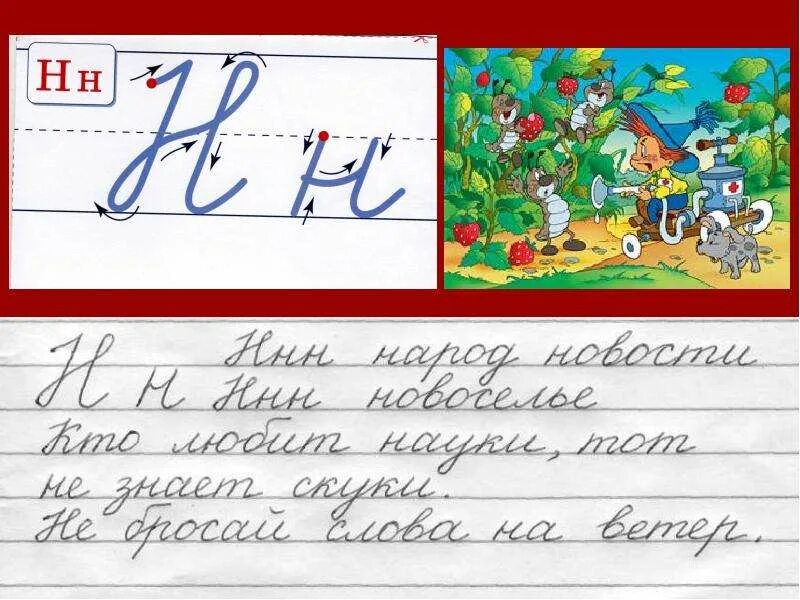 Н н
Н н
Н н Ннн народ новости
Ннн новоселье
Кто любит науки, тот
не знает скуки.
Не бросай слова на ветер.